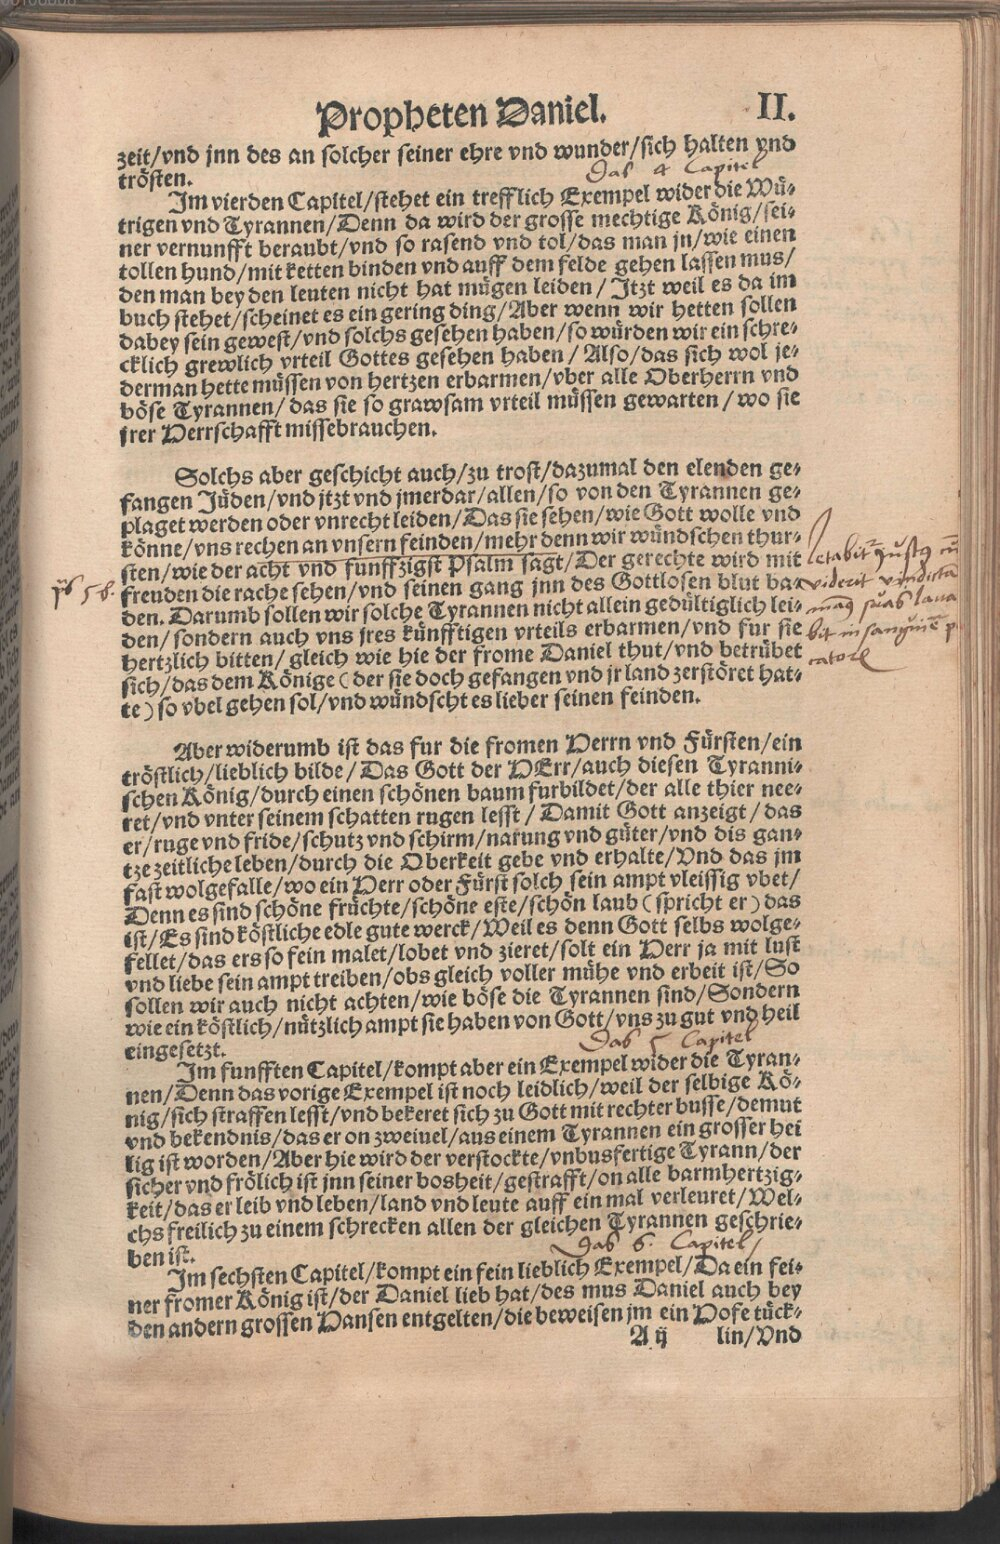 Propheten Daniel. II.
zeit/vnd jnn des an solcher seiner ehre vnd wunder/sich halten vnd
trösten.
Das 4 Capitel
Im vierden Capitel/stehet ein trefflich Exempel wider die Wü-
trigen vnd Tyrannen/Denn da wird der grosse mechtige König/sei-
ner vernunfft beraubt/vnd so rasend vnd tol/das man jn/wie einen
tollen hund/mit ketten binden vnd auff dem felde gehen lassen mus/
den man bey den leuten nicht hat mügen leiden/Itzt weil es da im
buch stehet/scheinet es ein gering ding/Aber wenn wir hetten sollen
dabey sein gewest/vnd solchs gesehen haben/so würden wir ein schre-
cklich grewlich vrteil Gottes gesehen haben/Also/das sich wol je-
derman hette müssen von hertzen erbarmen/vber alle Oberherrn vnd
böse Tyrannen/das sie so grawsam vrteil müssen gewarten/wo sie
jrer Herrschafft missebrauchen.
Solchs aber geschicht auch/zu trost/dazumal den elenden ge-
fangen Jüden/vnd jtzt vnd jmerdar/allen/so von den Tyrannen ge-
plaget werden oder vnrecht leiden/Das sie sehen/wie Gott wolle vnd
könne/vns rechen an vnsern feinden/mehr denn wir wündschen thur-
sten/wie der acht vnd funffzigst Psalm sagt/Der gerechte wird mit
freuden die rache sehen/vnd seinen gang jnn des Gottlosen blut ba-
den. Darumb sollen wir solche Tyrannen nicht allein gedültiglich lei-
den/sondern auch vns jres künfftigen vrteils erbarmen/vnd fur sie
hertzlich bitten/gleich wie hie der frome Daniel thut/vnd betrübet
sich/das dem Könige (der sie doch gefangen vnd jr land zerstöret hat-
te) so vbel gehen sol/vnd wündscht es lieber seinen feinden.
58.
viderit vindictā
suas lava
bit in sanguinē p
catoris
Aber widerumb ist das fur die fromen Herrn vnd Fürsten/ein
tröstlich/lieblich bilde/Das Gott der HErr/auch diesen Tyranni-
schen König/durch einen schönen baum furbildet/der alle thier nee-
ret/vnd vnter seinem schatten rugen lesst/Damit Gott anzeigt/das
er/ruge vnd fride/schutz vnd schirm/narung vnd güter/vnd dis gan-
tze zeitliche leben/durch die Oberkeit gebe vnd erhalte/Vnd das jm
fast wolgefalle/wo ein Herr oder Fürst solch sein ampt vleissig vbet/
Denn es sind schöne früchte/schöne este/schön laub (spricht er) das
ist/Es sind köstliche edle gute werck/Weil es denn Gott selbs wolge-
fellet/das ers so fein malet/lobet vnd zieret/solt ein Herr ja mit lust
vnd liebe sein ampt treiben/obs gleich voller mühe vnd erbeit ist/So
sollen wir auch nicht achten/wie böse die Tyrannen sind/Sondern
wie ein köstlich/nützlich ampt sie haben von Gott/vns zu gut vnd heil
eingesetzt.
Das 5 Capitel
Im funfften Capitel/kompt aber ein Exempel wider die Tyran-
nen/Denn das vorige Exempel ist noch leidlich/weil der selbige Kö-
nig/sich straffen lesst/vnd bekeret sich zu Gott mit rechter busse/demut
vnd bekendnis/das er on zweiuel/aus einem Tyrannen ein grosser hei
lig ist worden/Aber hie wird der verstockte/vnbusfertige Tyrann/der
sicher vnd frölich ist jnn seiner bosheit/gestrafft/on alle barmhertzig-
keit/das er leib vnd leben/land vnd leute auff ein mal verleuret/Wel-
chs freilich zu einem schrecken allen der gleichen Tyrannen geschrie-
ben ist.
Das 6. Capitel/
Im sechsten Capitel/kompt ein fein lieblich Exempel/Da ein fei-
ner fromer König ist/der Daniel lieb hat/des mus Daniel auch bey
den andern grossen Hansen entgelten/die beweisen jm ein Hofe tück-
A ij lin/Vnd